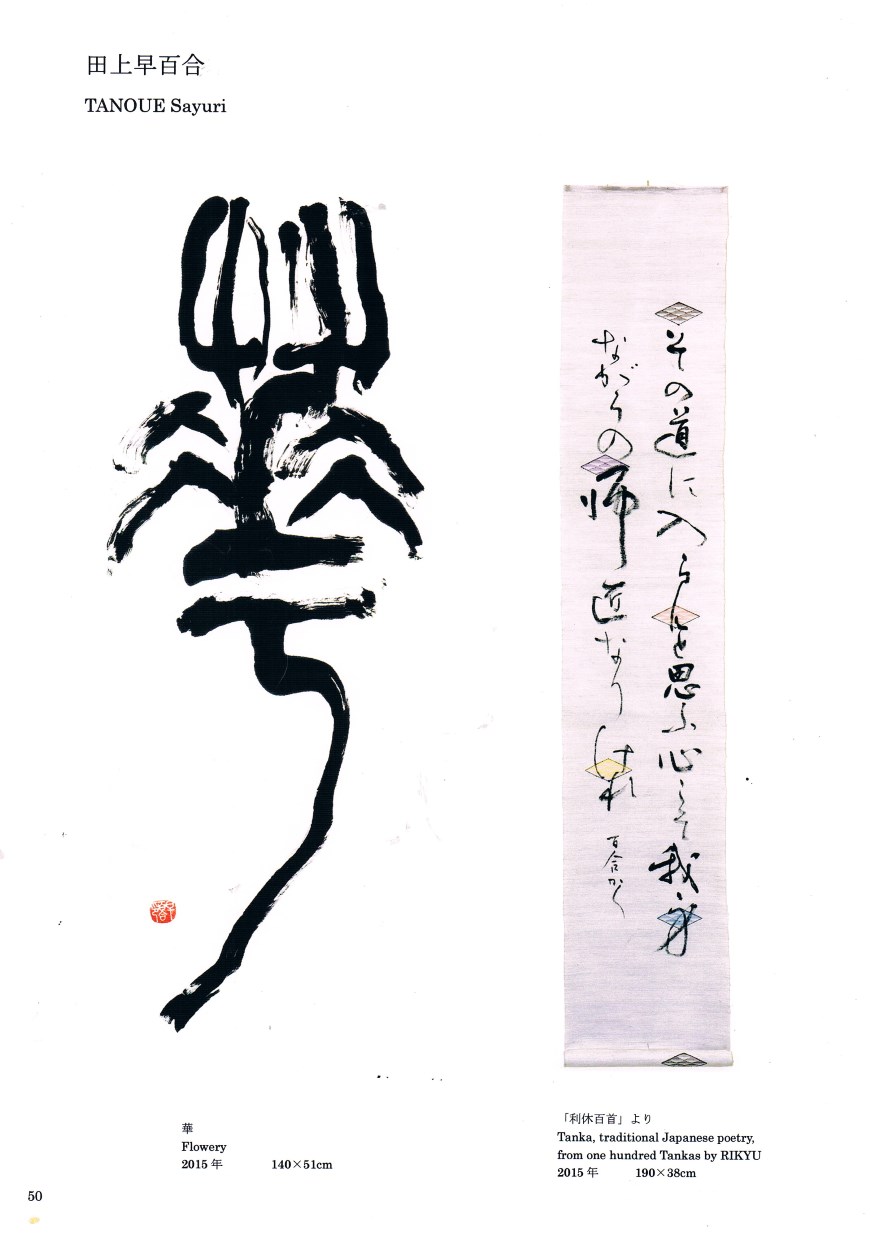 田上早百合
TANOUE Sayuri
華
その道に入らんと思ふ心こそ我身
ながらの師匠なりけれ
百合かく
華
Flowery
2015年 140×51cm
「利休百首」より
Tanka, traditional Japanese poetry,
from one hundred Tankas by RIKYU
2015年 190×38cm
50